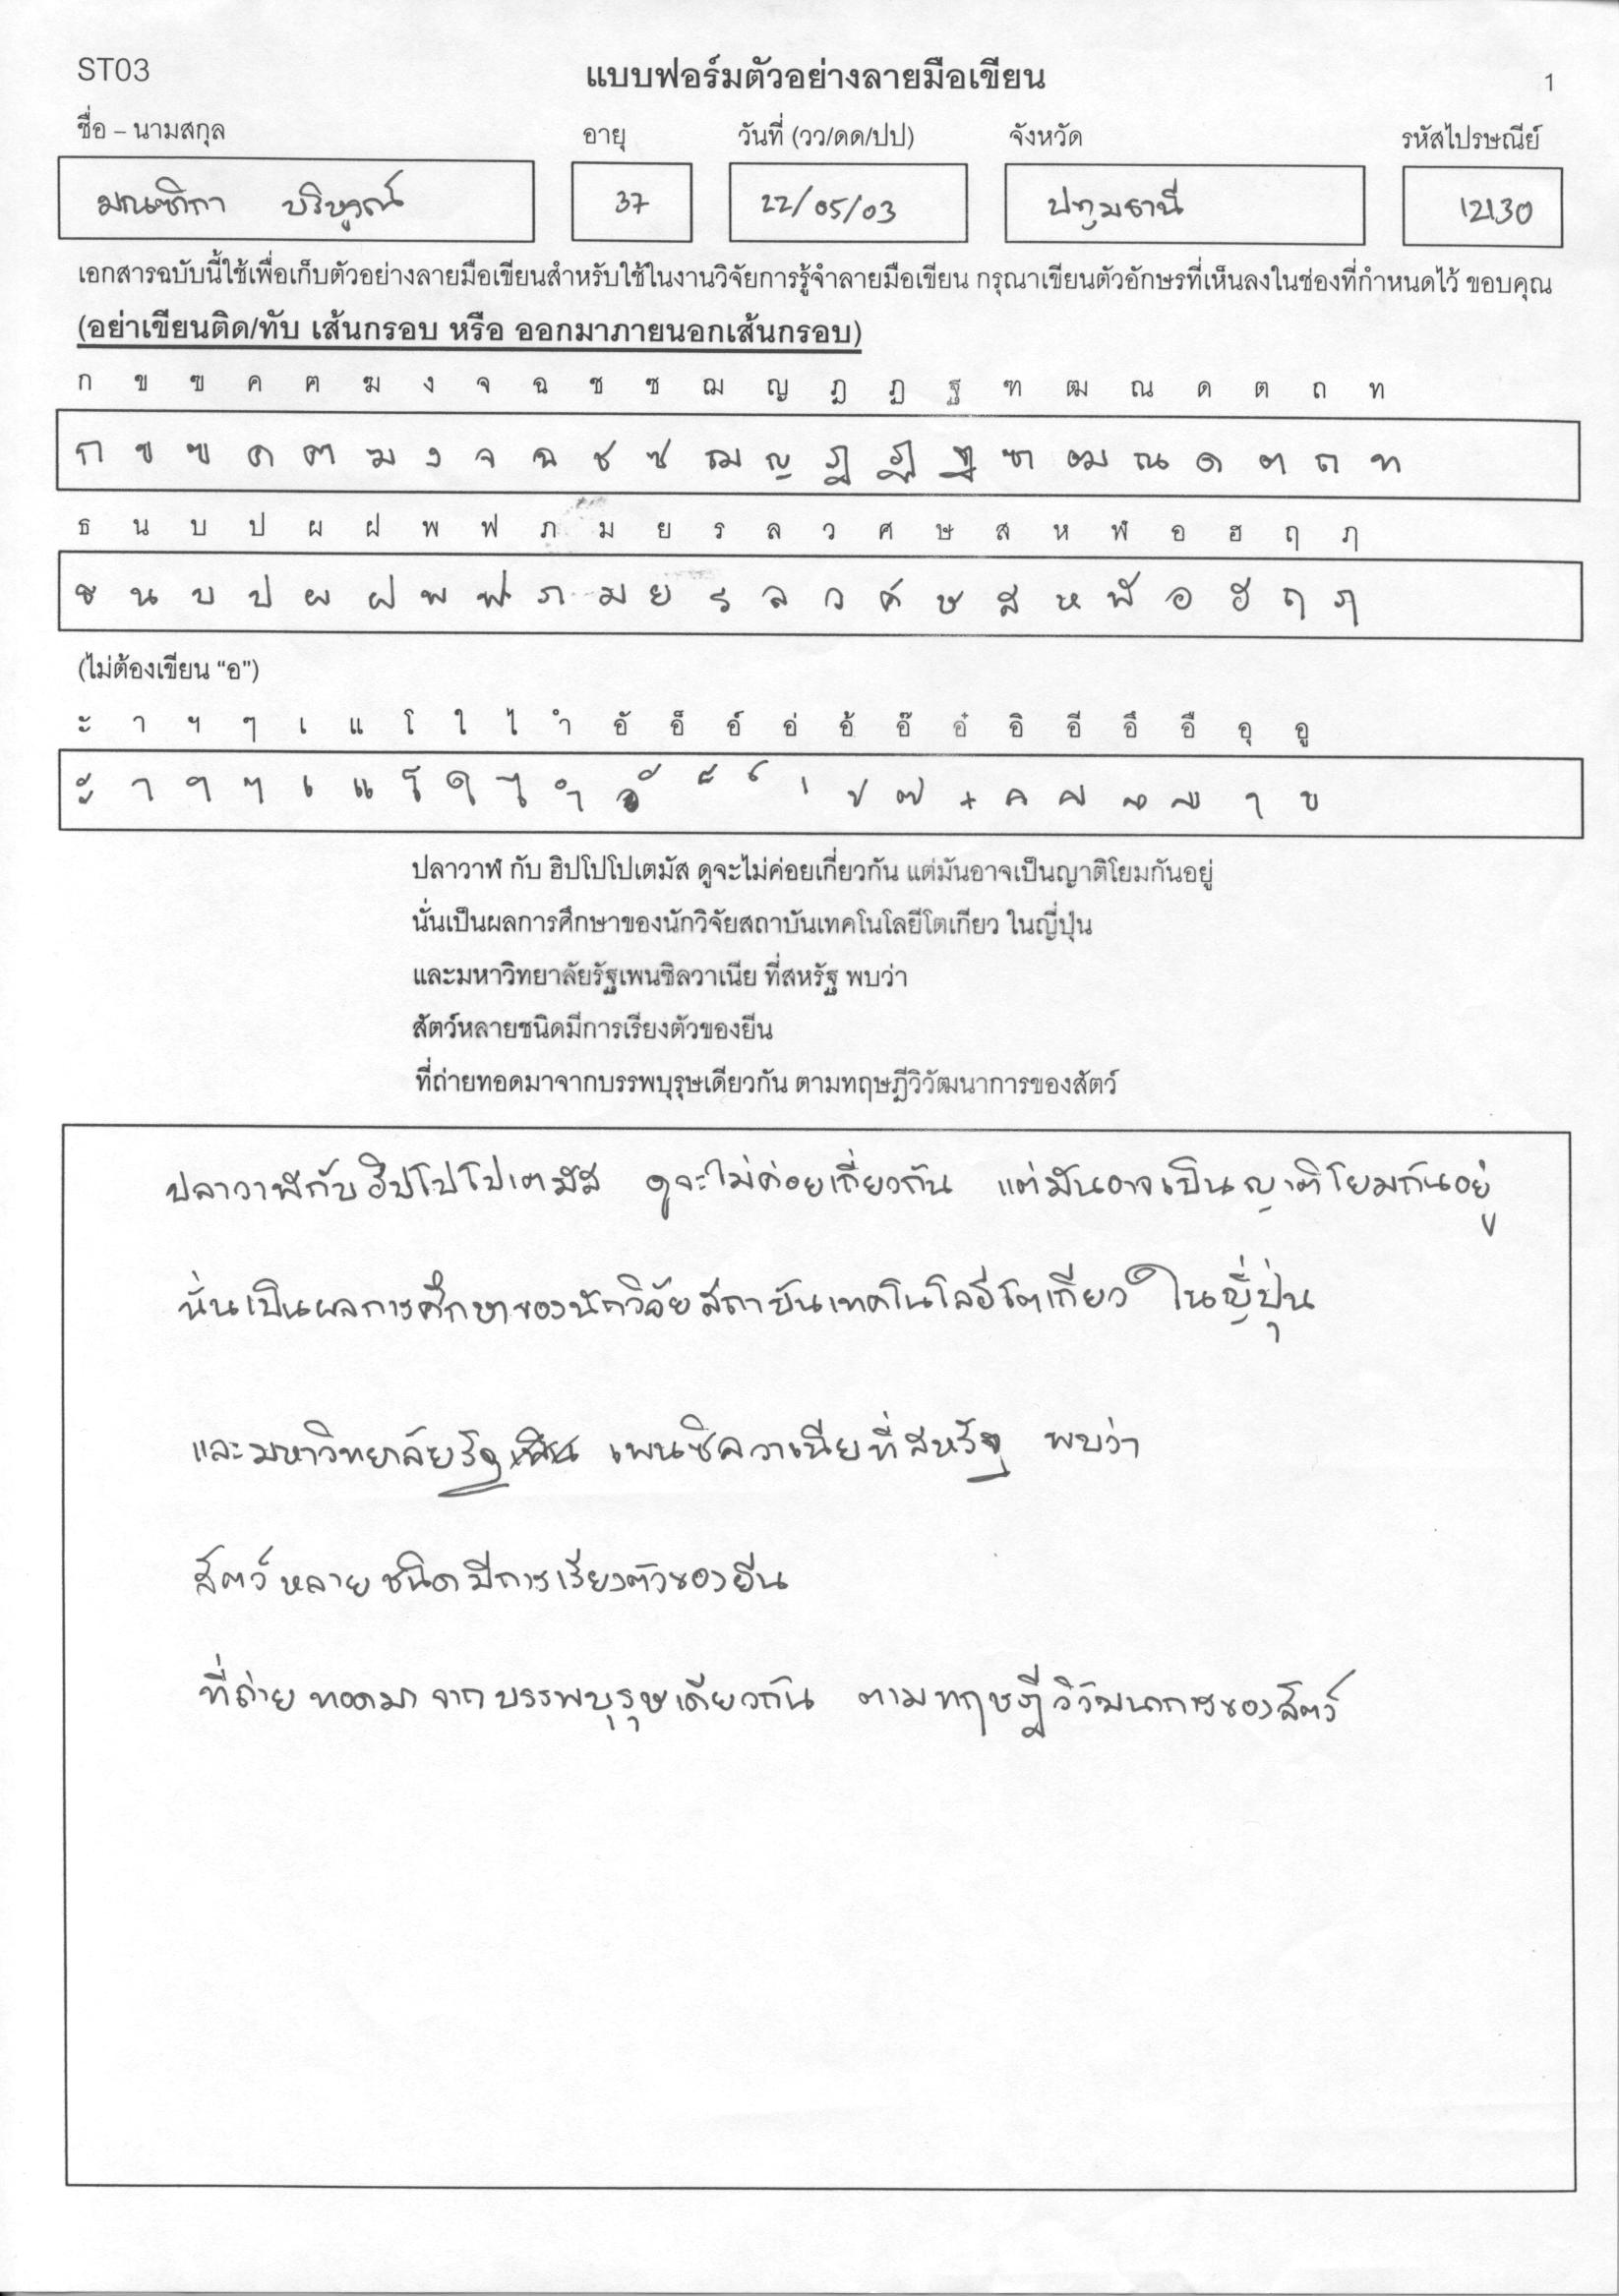 ST03 แบบฟอร์มตัวอย่างลายมือเขียน 1
ชื่อ – นามสกุล อายุ วันที่ (วว/ดด/ปป) จังหวัด รหัสไปรษณีย์
มณฑิกา บริบูรณ์ 37 22/05/03 ปทุมธานี 12130
เอกสารฉบับนี้ใช้เพื่อเก็บตัวอย่างลายมือเขียนสำหรับใช้ในงานวิจัยการรู้จำลายมือเขียน กรุณาเขียนตัวอักษรที่เห็นลงในช่องที่กำหนดไว้ ขอบคุณ
(อย่าเขียนติด/ทับ เส้นกรอบ หรือ ออกมาภายนอกเส้นกรอบ)
ก ข ฃ ค ฅ ฆ ง จ ฉ ช ซ ฌ ญ ฎ ฏ ฐ ฑ ฒ ณ ด ต ถ ท
ก ข ฃ ค ฅ ฆ ง จ ฉ ช ซ ฌ ญ ฎ ฏ ฐ ฑ ฒ ณ ด ต ถ ท
ธ น บ ป ผ ฝ พ ฟ ภ ม ย ร ล ว ศ ษ ส ห ฬ อ ฮ ฤ ฦ
ธ น บ ป ผ ฝ พ ฟ ภ ม ย ร ล ว ศ ษ ส ห ฬ อ ฮ ฤ ฦ
(ไม่ต้องเขียน “อ”)
ะ า ฯ ๆ เ แ โ ใ ไ ำ อั อ็ อ์ อ่ อ้ อ๊ อ๋ อิ อี อึ อื อุ อู
ะ า ฯ ๆ เ แ โ ใ ไ ำ ั ็ ์ ่ ้ ๊ ๋ ิ ี ึ ื ุ ู
ปลาวาฬ กับ ฮิปโปโปเตมัส ดูจะไม่ค่อยเกี่ยวกัน แต่มันอาจเป็นญาติโยมกันอยู่
นั่นเป็นผลการศึกษาของนักวิจัยสถาบันเทคโนโลยีโตเกียว ในญี่ปุ่น
และมหาวิทยาลัยรัฐเพนซิลวาเนีย ที่สหรัฐ พบว่า
สัตว์หลายชนิดมีการเรียงตัวของยีน
ที่ถ่ายทอดมาจากบรรพบุรุษเดียวกัน ตามทฤษฎีวิวัฒนาการของสัตว์
ปลาวาฬกับฮิปโปโปเตมัส ดูจะไม่ค่อยเกี่ยวกัน แต่มันอาจเป็นญาติโยมกันอยู่
นั่นเป็นผลการศึกษาของนักวิจัยสถาบันเทคโนโลยีโตเกียว ในญี่ปุ่น
และมหาวิทยาลัยรัฐ เพนซิลวาเนียที่สหรัฐ พบว่า
สัตว์หลายชนิดมีการเรียงตัวของยีน
ที่ถ่ายทอดมาจากบรรพบุรุษเดียวกัน ตามทฤษฎีวิวัฒนาการของสัตว์